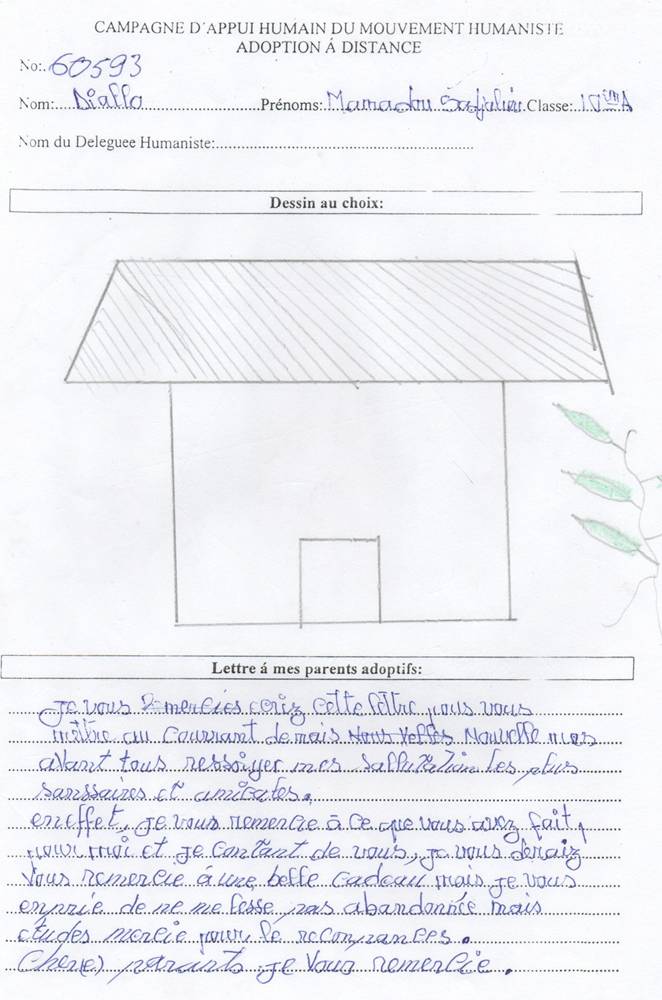 CAMPAGNE D'APPUI HUMAIN DU MOUVEMENT HUMANISTE
ADOPTION Á DISTANCE
No:. 60593
Nom: Diallo Prénoms: Mamadou Classe: 10ième A
Nom du Deleguee Humaniste:
Dessin au choix:
Lettre á mes parents adoptifs:
Je vous cette lettre pous vous
mettre au Courrant de mais Nouvelle mes
avant tous ressoiyer mes Sallutation les plus
sanssaires et amicales.
en effet, je vous remercie à ce que vous avez fait,
pour moi et je contant de vous, ja vous deraiz
Vous remercie à une belle cadeau mais je vous
enprie de ne me lesse pas abandonnée mais
études mercie pour le reconpances.
Cher(e) parants je Vous remercie.